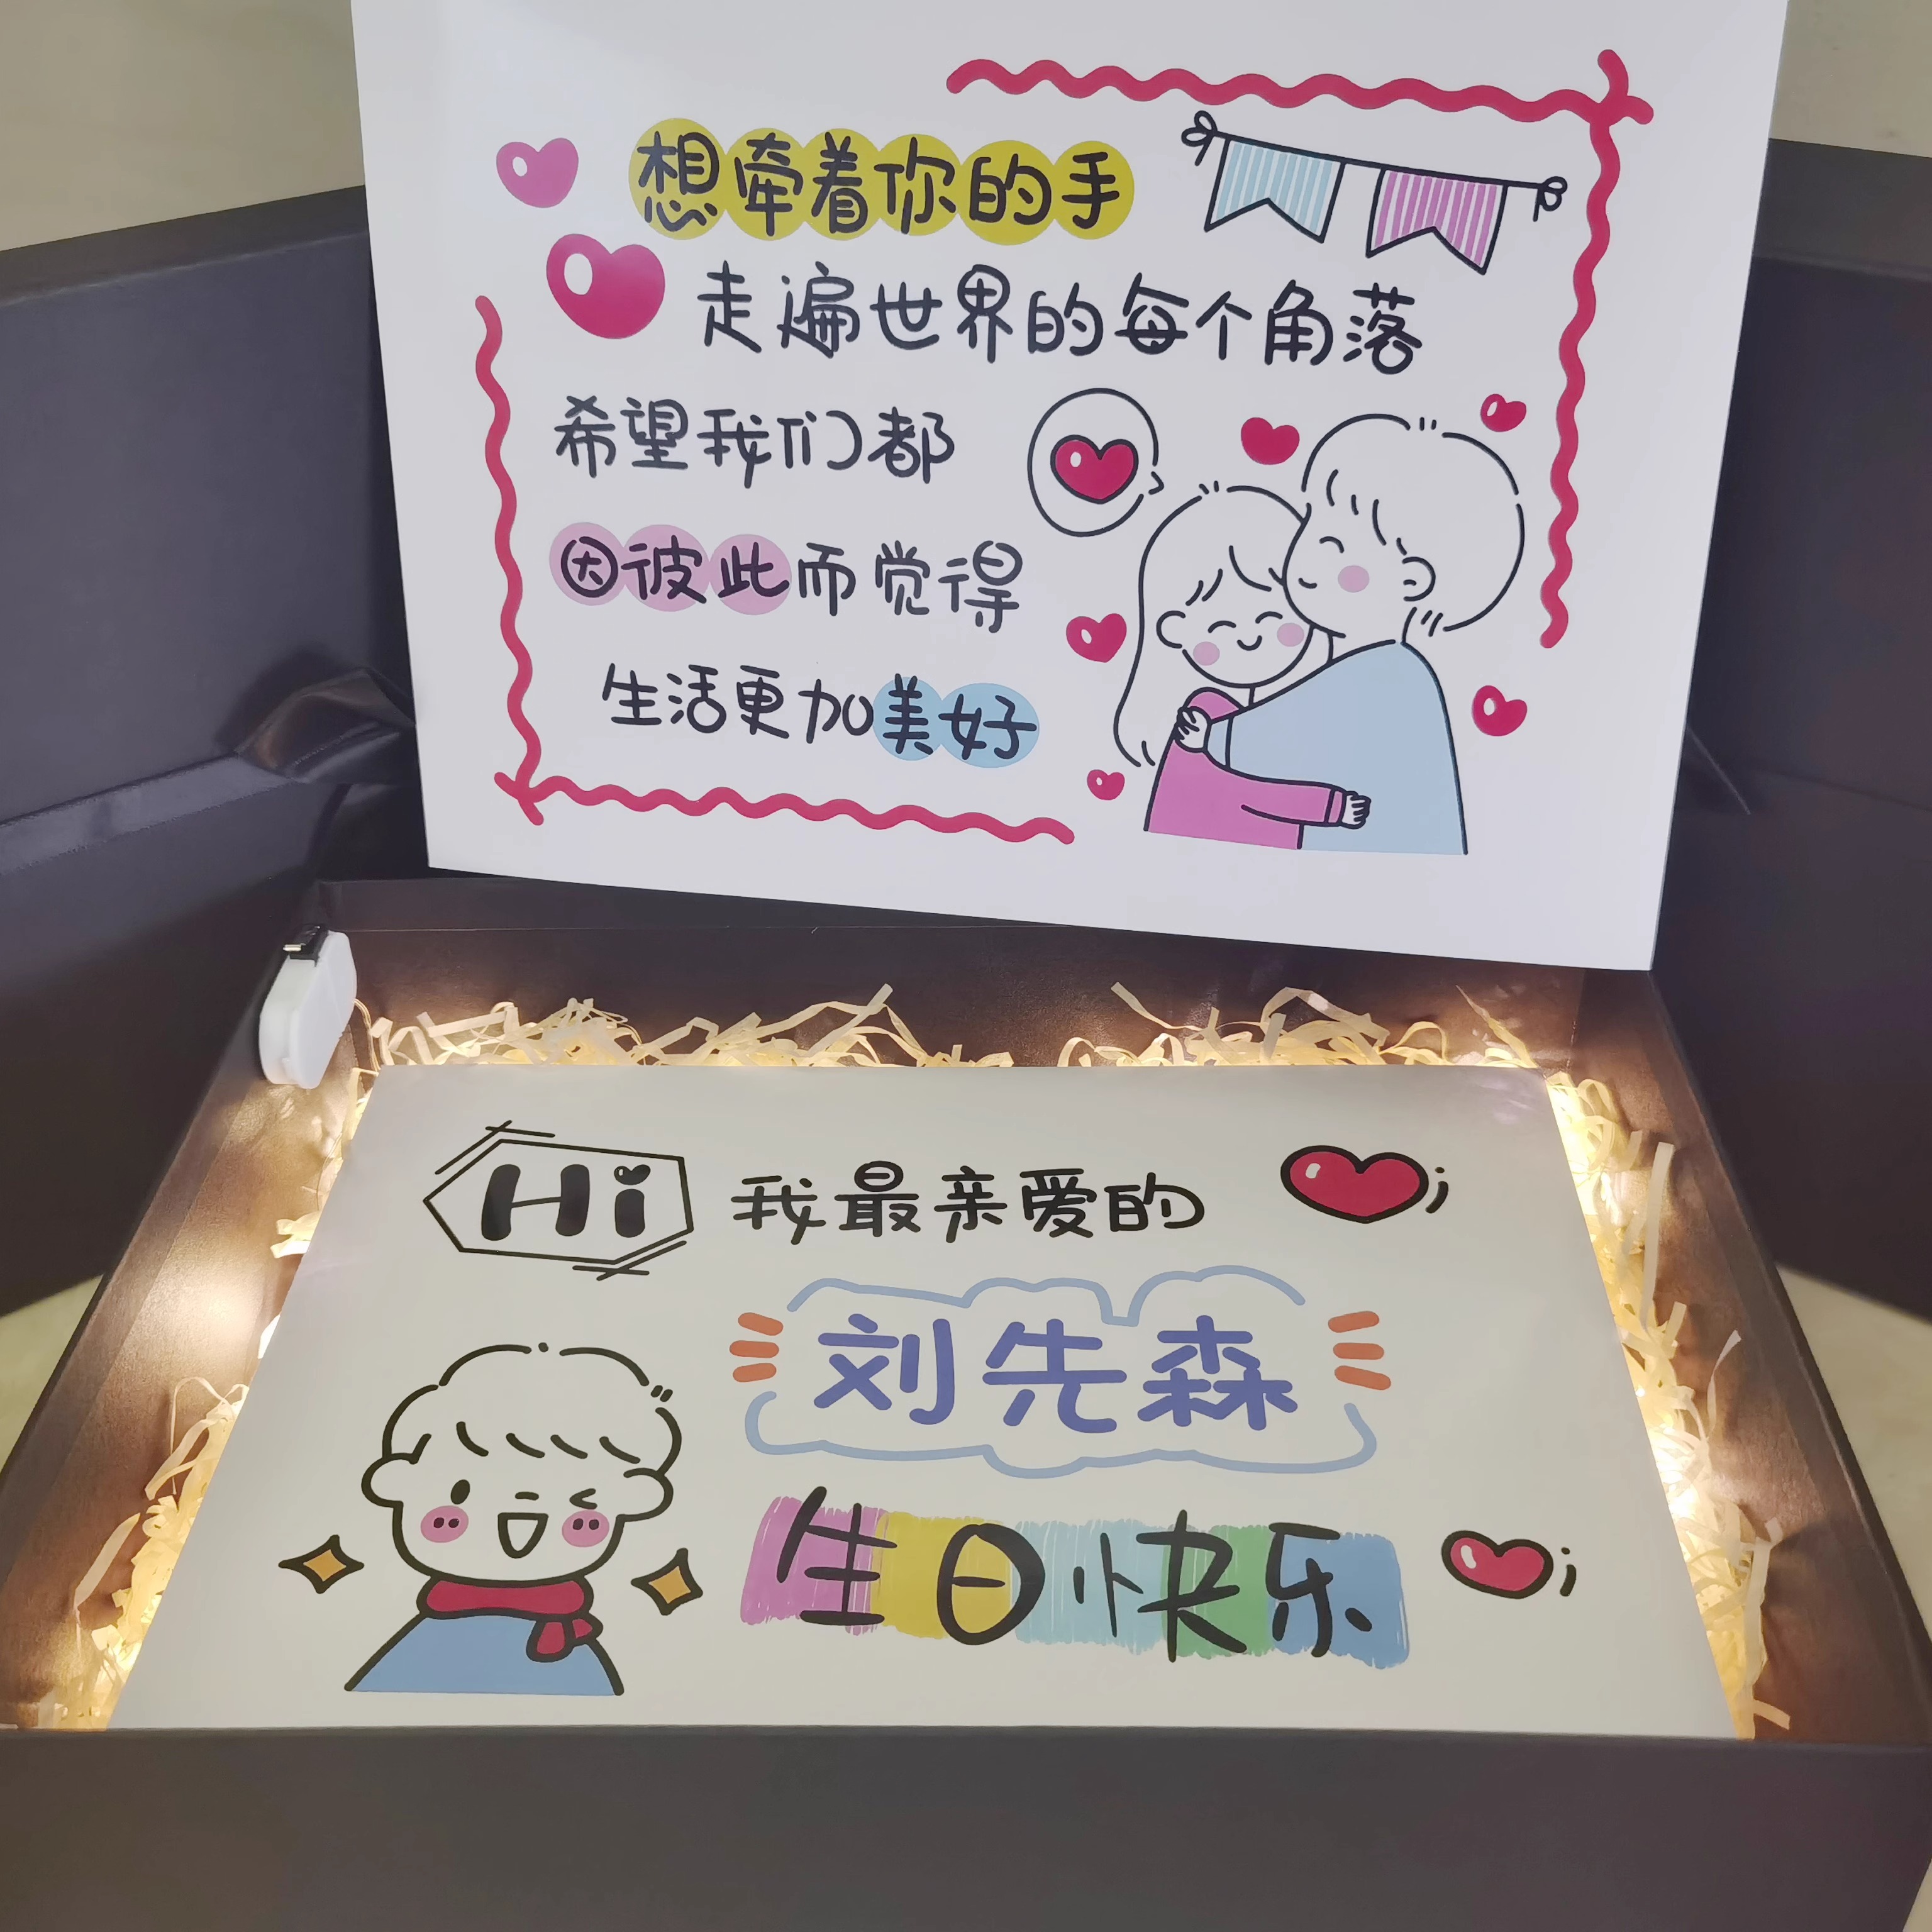 想牵着你的手
走遍世界的每个角落
希望我们都
因彼此而觉得
生活更加美好
Hi 我最亲爱的
刘先森
生日快乐